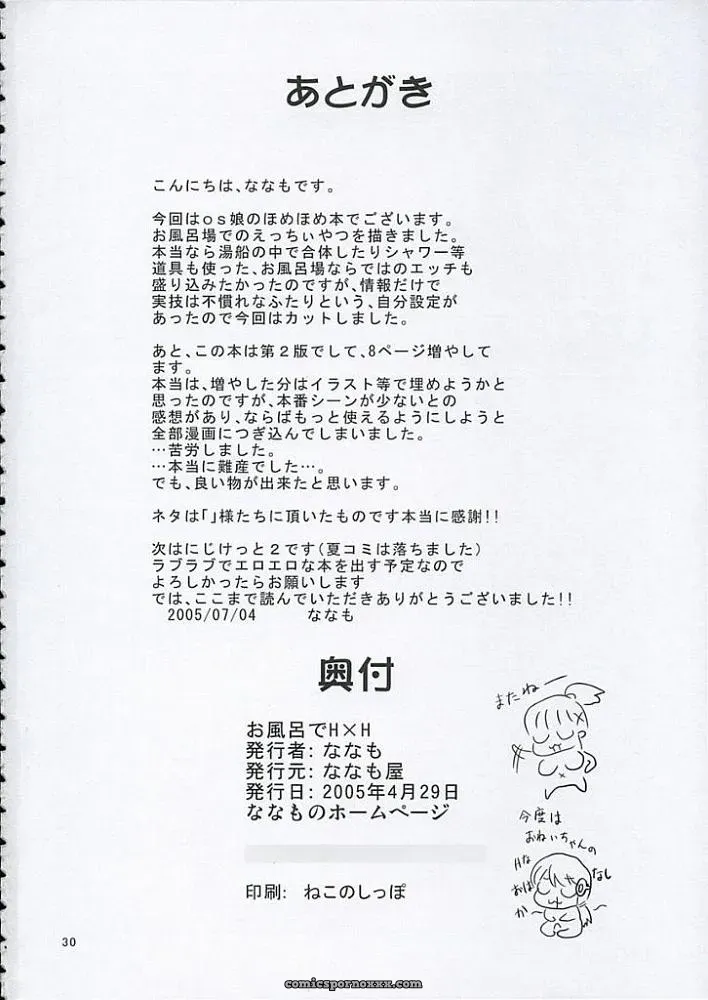 あとがき
こんにちは、ななもです。
今回はos娘のほめほめ本でございます。
お風呂場でのえっちぃやつを描きました。
本当なら湯船の中で合体したりシャワー等
道具も使った、お風呂場ならではのエッチも
盛り込みたかったのですが、情報だけで
実技は不慣れなふたりという、自分設定が
あったので今回はカットしました。
あと、この本は第２版でして、8ページ増やして
ます。
本当は、増やした分はイラスト等で埋めようかと
思ったのですが、本番シーンが少ないとの
感想があり、ならばもっと使えるようにしようと
全部漫画につぎ込んでしまいました。
…苦労しました。
…本当に難産でした…。
でも、良い物が出来たと思います。
ネタは「」様たちに頂いたものです本当に感謝!!
次はにじけっと２です(夏コミは落ちました)
ラブラブでエロエロな本を出す予定なので
よろしかったらお願いします
では、ここまで読んでいただきありがとうございました!!
2005/07/04 ななも
奥付
お風呂でH×H
発行者: ななも
発行元: ななも屋
発行日: 2005年4月29日
ななものホームページ
印刷: ねこのしっぽ
またねー
今度は
おねいちゃんの
Hな
おは
なし
か～
30
comicspornoxxx.com